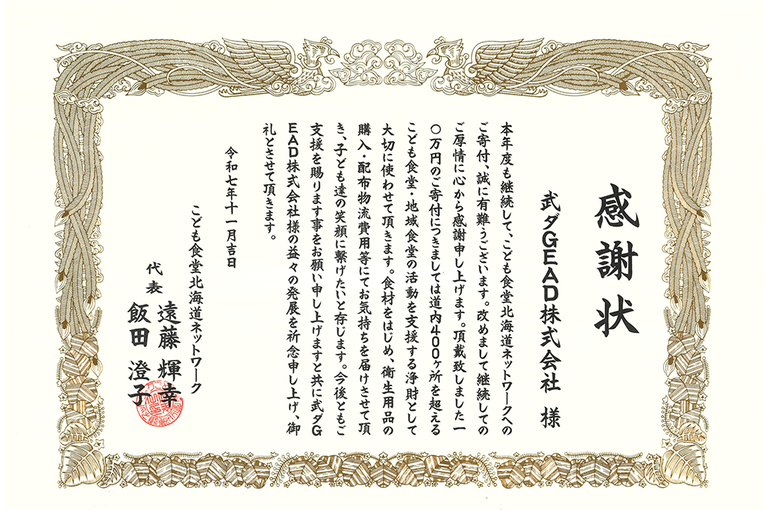 感謝状
武ダGEAD株式会社 様
本年度も継続して、こども食堂北海道ネットワークへの
ご寄付、誠に有難うございます。改めまして継続しての
ご厚情に心から感謝申し上げます。頂戴致しました一
〇万円のご寄付につきましては道内400ヶ所を超える
こども食堂・地域食堂の活動を支援する浄財として
大切に使わせて頂きます。食材をはじめ、衛生用品の
購入・配布物流費用等にてお気持ちを届けさせて頂
き、子ども達の笑顔に繋げたいと存じます。今後ともご
支援を賜ります事をお願い申し上げますと共に武ダG
EAD株式会社様の益々の発展を祈念申し上げ、御
礼とさせて頂きます。
令和七年十一月吉日
こども食堂北海道ネットワーク
代表 遠藤 輝幸
飯田 澄子